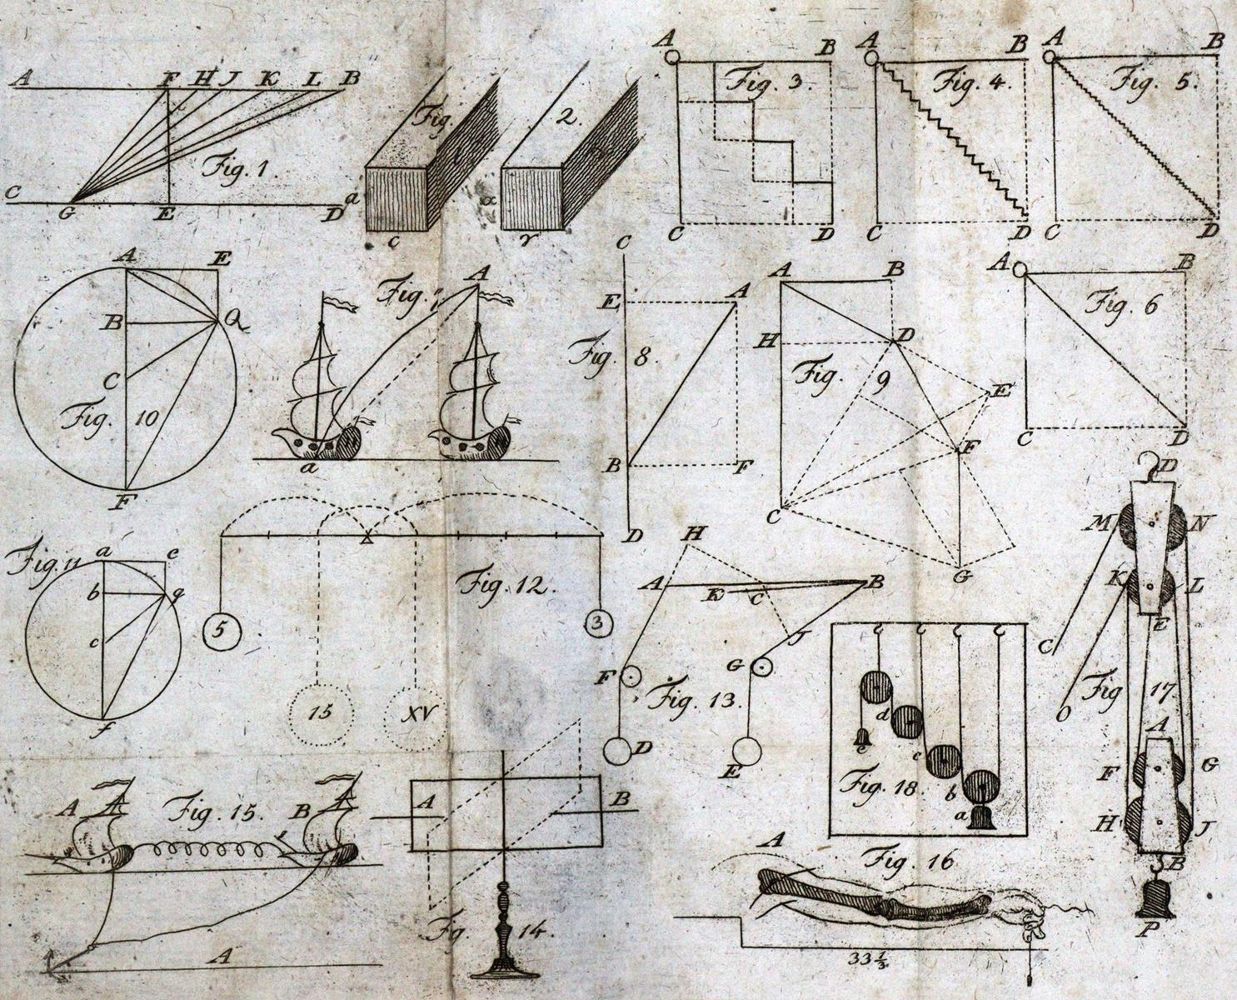 A F H J K L B
Fig. 1
C G E D
Fig. 2.
a c α γ
A B
Fig. 3.
C D
A B
Fig. 4.
C D
A B
Fig. 5.
C D
A E
B Q
C
Fig. 10
F
Fig. 7
A
a
C
E A
Fig. 8.
B F
D
A B
H D
Fig. 9
E
F
C
G
A B
Fig. 6
C D
Fig. 11
a e
b q
c
f
Fig. 12.
5 3
15 XV
H
A K C B
F G J
Fig. 13.
D E
D
M N
K L
E
C
Fig. 17.
O
A
F G
H J
B
P
d
e c
Fig. 18.
b
a
A Fig. 15. B
A
A B
Fig. 14.
A Fig. 16
33 1/3